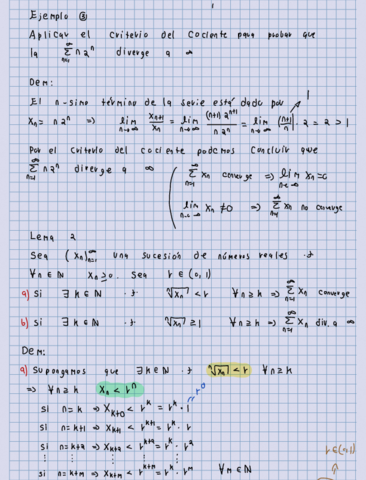 Ejemplo ③
Aplicar el criterio del cociente para probar que
la ∑_{n=1}^∞ n 2^n diverge a ∞
Dem:
El n-simo término de la serie está dado por
x_n = n 2^n => lim_{n→∞} x_{n+1}/x_n = lim_{n→∞} (n+1) 2^{n+1} / n 2^n = lim_{n→∞} (n+1)/n · 2 = 2 > 1
1
Por el criterio del cociente podemos concluir que
∑_{n=1}^∞ n 2^n diverge a ∞
∑_{n=1}^∞ x_n converge => lim_{n→∞} x_n = 0
lim_{n→∞} x_n ≠ 0 => ∑_{n=1}^∞ x_n no converge
Lema 2
Sea (x_n)_{n=1}^∞ una sucesión de números reales .t
∀n∈ℕ x_n ≥ 0. Sea r ∈ (0,1)
a) Si ∃k∈ℕ .t ⁿ√x_n < r ∀n≥k => ∑_{n=1}^∞ x_n converge
b) Si ∃k∈ℕ .t ⁿ√x_n ≥ 1 ∀n≥k => ∑_{n=1}^∞ x_n div. a ∞
Dem:
a) Supongamos que ∃k∈ℕ .t ⁿ√x_n < r ∀n≥k
=> ∀n≥k x_n < r^n
r^0
si n=k => x_{k+0} < r^k = r^k · 1
si n=k+1 => x_{k+1} < r^{k+1} = r^k · r
si n=k+2 => x_{k+2} < r^{k+2} = r^k · r^2
⋮ ⋮ ⋮ ⋮
si n=k+m => x_{k+m} < r^{k+m} = r^k · r^m ∀m∈ℕ
r∈(0,1)